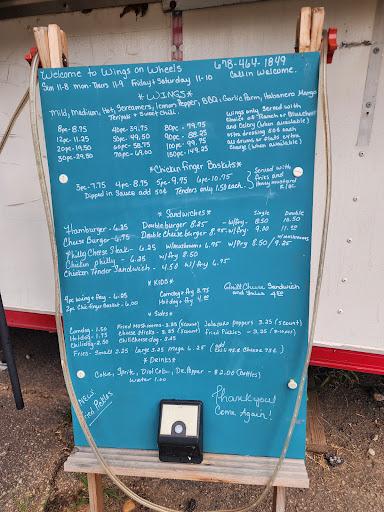 Welcome to Wings on Wheels 678-464-1849
Sun 11-8 mon-Thurs 11-9 Friday & Saturday 11-10 Call in Welcome.
* WINGS *
Mild, medium, Hot, Screamers, lemon Pepper, BBQ, Garlic Parm, Habanero Mango
Teriyaki + Sweet chili
8pc - 8.75 40pc - 39.75 80pc - 79.75
12pc - 11.25 50pc - 49.50 90pc - 88.25
20pc - 19.50 60pc - 58.75 100pc - 99.75
30pc - 29.50 70pc - 69.00 150pc - 149.25
Wings only Served with
Choice of "Ranch or Bleucheese
and Celery (when available)
extra dressing 50¢ each
all drums or flats extra
Charge (when available)
* Chicken finger Baskets *
3pc - 7.75 4pc - 8.75 5pc - 9.75 6pc - 10.75
Dipped in Sauce add 50¢ Tenders only 1.50 each
Served with
fries and
Honey mustard
* Sandwiches *
Single Double
Hamburger - 6.25 Double burger 8.25 w/fry 8.50 10.50
Cheese Burger - 6.75 Double Cheese burger 8.95 w/fry 9.00
Philly Cheese Steak - 6.25 w/mushrooms 6.95 w/Fry 8.50 / 9.25
Chicken philly - 6.25 w/fry 8.50
Chicken Tender Sandwich - 4.50 w/fry 6.75
* KIDS *
4pc wing + Fry - 6.25 Corndog + fry 3.75
2pc Chic finger Basket - 6.00 Hotdog + fry
Grill Cheese Sandwich
* Sides *
Corndog - 1.50 Fried Mushrooms - 3.25 Jalapeño poppers - 3.25 (5 count)
Hotdog - 1.75 Cheese sticks - 3.25 Fried Pickles - 3.25
Chilidog - 2.50 Chili cheese dog - 3.25
Fries - Small 2.25 large 3.25 mega 6.25
* Drinks *
Coke, Sprite, Diet Coke, Dr. Pepper - $2.00 (Bottles)
Water 1.00
NEW!
Fried Pickles
Thank you!
Come Again!